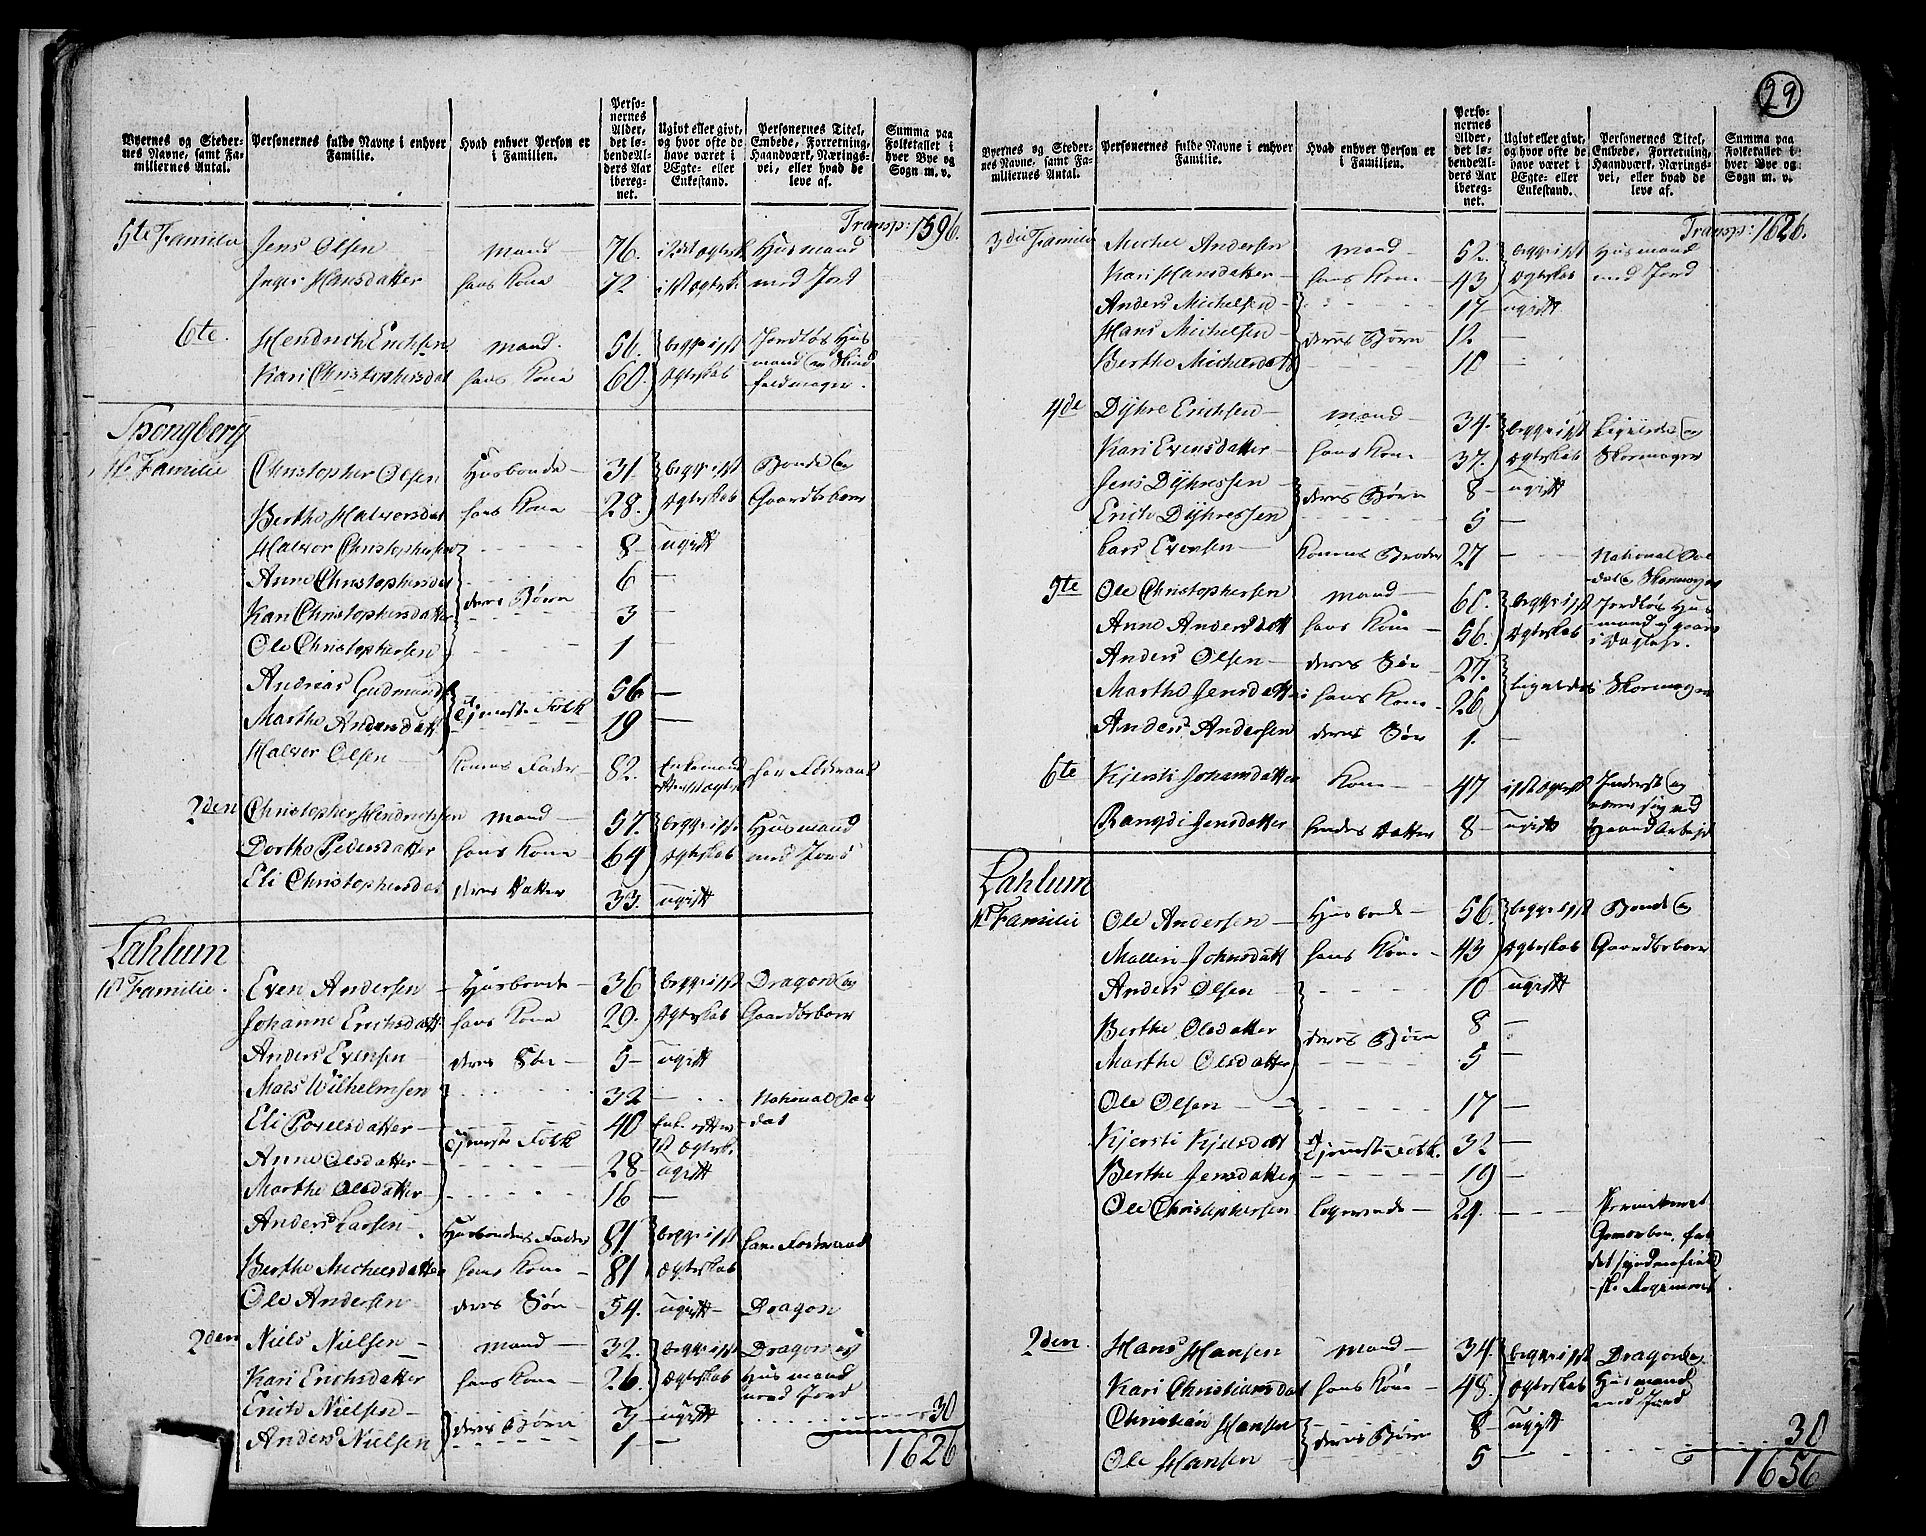 29
Byernes og Stedernes Navne, samt Familiernes Antal.
Personernes fulde Navne i enhver Familie.
Hvad enhver Person er i Familien.
Personernes Alder, det løbende Alders Aar iberegnet.
Ugivt eller givt, og hvor ofte de have været i Ægte- eller Enkestand.
Personernes Titel, Embede, Forretning, Haandværk, Næringsvei, eller hvad de leve af.
Summa paa Folketallet i hver Bye og Sogn m. v.
Transp: 1596.
5te Familie Jens Olsen mand 76. i 2det Ægtesk Husmand
Inger Hansdatter hans Kone 72 i 1st Ægtesk med Jord
6te. Hendrich Erichsen mand. 56. begge i 1st Jordløs Hus
Kari Christophersdat hans Kone 60. Ægteskab mand og Skind
feldmager.
Spongberg
1te Familie Christopher Olsen Husbonde 31. begge i 1st Bonde og
Berthe Halvorsdat hans Kone 28. Ægteskab Gaardbeboer
Halvor Christophersen 8 ugift
Anne Christophersdat 6 —
Kari Christophersdatter deres Børn 3 —
Ole Christophersen 1 —
Andreas Gudmunds 56 —
Marthe Andersdatt Tjeneste Folk 19 —
Halvor Olsen Konens Fader 82. Enkemand har Føderaad
2den Christopher Hendrichsen mand 57. begge i 1st Husmand
Dorthe Pedersdatter hans Kone 69 Ægteskab med Jord
Eli Christophersdat deres Datter 33. ugift
Lahlum
1te Familie. Even Andersen Husbonde 36 begge i 1st Dragon og
Johanne Erichsdatt hans Kone 29. Ægteskab Gaardbeboer
Anders Evensen deres Søn 5 ugift
Mads Wilhelmsen 32 — National Sol
dat
Eli Povelsdatter Tjeneste Folk 40 Enke efter
1st Ægtesk.
Anne Olsdatter 28 ugift
Marthe Olsdatter 16 —
Anders Larsen Husbondens Fader 81. begge i 1st har Føderaad
Berthe Michelsdatter hans Kone 81 Ægteskab
Ole Andersen deres Søn 54. ugift Dragon
2den Niels Nielsen mand 32. begge i 1st Dragon og
Kari Erichsdatter hans Kone 26. Ægteskab Husmand
med Jord
Erich Nielsen deres Børn 3 ugift 30
Anders Nielsen 1 —
1626
Byernes og Stedernes Navne, samt Familiernes Antal.
Personernes fulde Navne i enhver Familie.
Hvad enhver Person er i Familien.
Personernes Alder, det løbende Alders Aar iberegnet.
Ugivt eller givt, og hvor ofte de have været i Ægte- eller Enkestand.
Personernes Titel, Embede, Forretning, Haandværk, Næringsvei, eller hvad de leve af.
Summa paa Folketallet i hver Bye og Sogn m. v.
Transp: 1626.
3die Familie Michel Andersen mand 52. begge i 1st Husmand
Kari Hansdatter hans Kone 43 Ægteskab med Jord
Anders Michelsen 17 ugift
Hans Michelsen deres Børn 12 —
Berthe Michelsdatt 10 —
4de Dyhre Erichsen mand 34. begge i 1st Ligeledes og
Kari Evensdatter hans Kone 37. Ægteskab Skormager
Jens Dyhresen deres Børn 8 ugift
Erich Dyhresen 5 —
Lars Evensen Konens Broder 27 — National Sol
dat og Skormager
5te Ole Christophersen mand 60. begge i 1st Jordløs Hus
Anne Andersdatt hans Kone 56. Ægteskab mand og gaar
i Dagleje.
Anders Olsen deres Søn 27. Ligeledes Skormager
Marthe Jensdatter hans Kone 26
Anders Andersen deres Søn 1. —
6te Kjersti Johansdatter Kone 47 i 1st Ægtesk Inderst og
nærer sig ved
Rangdi Jensdatter hendes Datter 8 ugift Haandarbejd
Lahlum
1te Familie Ole Andersen Husbonde 56. begge i 1st Bonde og
Malleri Johnsdatt hans Kone 43 Ægteskab Gaardbeboer
Anders Olsen 10 ugift
Berthe Olsdatter deres Børn 8
Marthe Olsdatter 5 —
Ole Olsen 17 —
Kjersti Kjelsdatt Tjeneste Folk. 32 —
Berthe Jensdatter 19 —
Ole Christophersen Logerende 24.
2den. Hans Hansen mand 34. begge i 1st Dragon og
Kari Christiansdat hans Kone 48. Ægteskab Husmand
med Jord
Christian Hansen deres Børn 8 ugift
Ole Hansen 5 — 30
1656